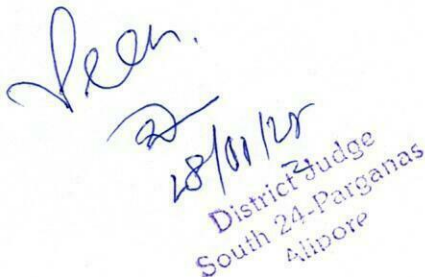 Seen.
District Judge
South 24-Parganas
Alipore